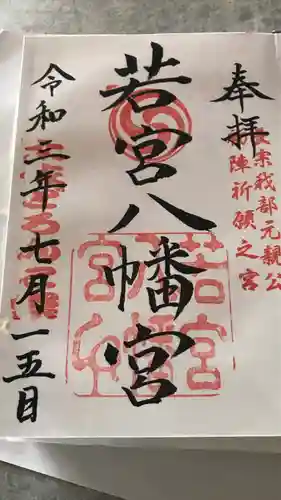 奉拝
長宗我部元親公
出陣祈願之宮
若宮八幡宮
令和三年七月一五日